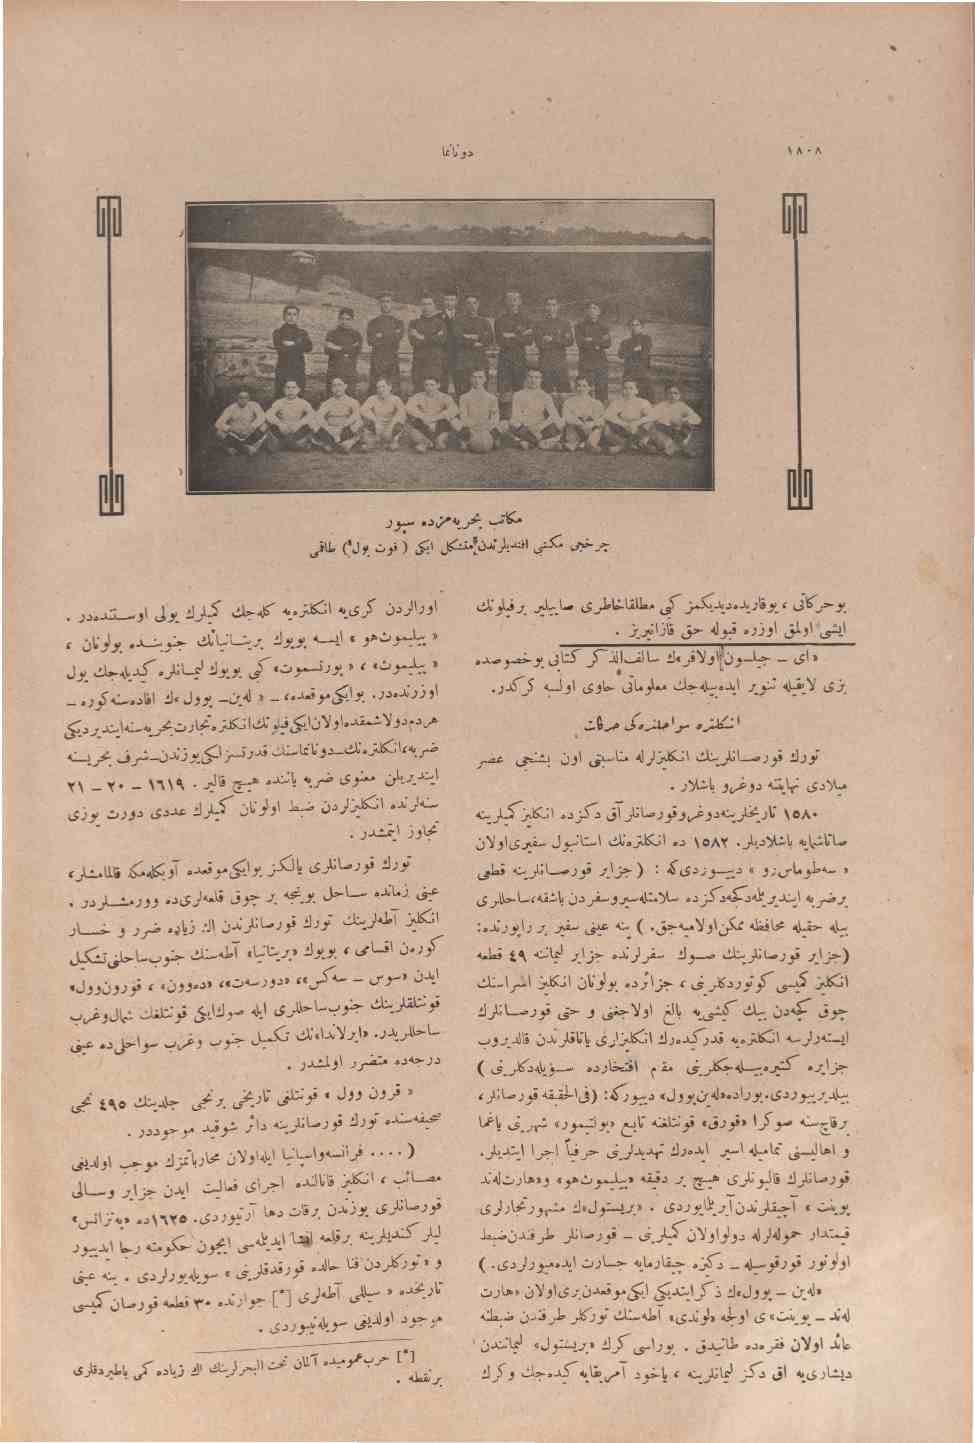 ١٨٠٨
دونانما
مكاتب بحريه‌مزده سپور
چرخجی مكتبی افندیلرندن متشكل ایكی ( فوت بول ) طاقمی
بو حركاتی ، یوقاریده‌دیدیكمز كبی مطلقا خاطری صاییلیر بر فیلونك
ایشی اولمق اوزره قبوله حق قازانیریز .
«ای – جیلسون اولافر»ك سالف‌الذكر كتابی بو خصوصده
بزی لایقیله تنویر ایده‌بیله‌جك معلوماتی حاوی اولسه كركدر.
انكلتره سواحلنده‌كی حركات
تورك قورصانلرینك انكلیزلرله مناسبتی اون بشنجی عصر
میلادی نهایتنه دوغرو باشلار .
١٥٨٠ تاریخلرینه‌دوغروقورصانلر آق دكزده انكلیز كمیلرینه
صاتاشمایه باشلادیلر. ١٥٨٢ ده انكلتره‌نك استانبول سفیری‌اولان
« سه‌طوماس‌رو » دییوردی‌كه : ( جزایر قورصانلرینه قطعی
بر ضربه ایندیریلمه‌دكجه‌دكزده سلامتله‌سیروسفردن باشقه،ساحللری
بیله حقیله محافظه ممكن‌اولامیه‌جق. ) ینه عینی سفیر بر راپورنده:
(جزایر قورصانلرینك صوك سفرلرنده جزایر لیماننه ٤٩ قطعه
انكلیز كمیسی كوتوردكلرینی ، جزائرده بولونان انكلیز اسراسنك
چوق كچه‌دن بیك كیشی‌یه بالغ اولاجغنی و حتی قورصانلرك
ایسترلرسه انكلتره‌یه قدر كیده‌رك انكلیزلری یاتاقلرندن قالدیروب
جزایره كتیره‌بیله‌جكلرینی مقام افتخارده سویله‌دكلرینی )
بیلدیرییوردی.بوراده«له‌ین‌پوول» دییوركه: (فی‌الحقیقه قورصانلر،
برقاچ‌سنه صوكرا «قورق» قونتلغنه تابع «بولتیمور» شهرینی یاغما
و اهالیسنی تمامیله اسیر ایده‌رك تهدیدلرینی حرفیاً اجرا ایتدیلر.
قورصانلرك قالیونلری هیچ بر دقیقه «پیلیموت‌هو» و«هارت‌له‌ند
پوینت » آچیقلرندن‌آیریلمایوردی . «بریستول»ك مشهور تجارلری
قیمتدار حموله‌لرله دولواولان كمیلرینی – قورصانلر طرفندن‌ضبط
اولونور قورقوسیله – دكزه چیقارمایه جسارت ایده‌میورلردی. )
«له‌ین – پوول»ك ذكر ایتدیكی ایكی‌موقعدن بری‌اولان «هارت
له‌ند – پوینت»ی اولجه «لوندی» آطه‌سنك توركلر طرفندن ضبطنه
عائد اولان فقره‌ده طانیدق . بوراسی كرك «بریستول» لیمانندن
دیشاری‌یه آق دكز لیمانلرینه ، یاخود آمریقایه كیده‌جك وكرك
اورالردن كری‌یه انكلتره‌یه كله‌جك كمیلرك یولی اوستنده‌در .
« پیلیموت‌هو » ایسه بویوك بریتانیانك جنوبنده بولونان ،
« پیلیموت» ، « پورتسموت» كبی بویوك لیمانلره كیدیله‌جك یول
اوزرنده‌در. بوایكی‌موقعده، – « له‌ین – پوول »ك افاده‌سنه‌كوره –
هردم‌دولاشمقده‌اولان‌ایكی‌فیلونك‌انكلتره تجارت‌بحریه‌سنه‌ایندیردیكی
ضربه،انكلتره‌نك–دونانماسنك قدرتسزلكی‌یوزندن–شرف بحریسنه
ایندیریلن معنوی ضربه یاننده هیچ قالیر . ١٦١٩ – ٢٠ – ٢١
سنه‌لرنده انكلیزلردن ضبط اولونان كمیلرك عددی دورت یوزی
تجاوز ایتمشدر .
تورك قورصانلری یالكز بوایكی‌موقعده آوبكله‌مكله قالمامشلر،
عینی زمانده ساحل بوینجه بر چوق قلعه‌لری‌ده وورمشلردر .
انكلیز آطه‌لرینك تورك قورصانلرندن اك زیاده ضرر و خسار
كوره‌ن اقسامی ، بویوك «بریتانیا» آطه‌سنك جنوب‌ساحلنی‌تشكیل
ایدن «سوس – سه‌كس»، «دورسه‌ت»، «ده‌وون» ، قورون‌وول»
قونتلقلرینك جنوب‌ساحللری ایله صوك‌ایكی قونتلغك شمال‌وغرب
ساحللریدر. «ایرلاندا»نك تكمیل جنوب وغرب سواحلی‌ده عینی
درجه‌ده متضرر اولمشدر .
« قرون وول » قونتلغی تاریخی برنجی جلدینك ٤٩٥ نجی
صحیفه‌سنده تورك قورصانلرینه دائر شوقید موجوددر.
( .... فرانسه‌واسپانیا ایله‌اولان محارباتمزك موجب اولدیغی
مصائب ، انكلیز قانالنده اجرای فعالیت ایدن جزایر وسالی
قورصانلری یوزندن برقات دها آرتیوردی. ١٦٢٥ده «په‌نزانس»
لیلر كندیلرینه برقلعه انشا ایدیلمه‌سی ایچون حكومته رجا ایدییور
و «توركلردن فنا حالده قورقدقلرینی » سویله‌یورلردی . ینه عینی
تاریخده « سیللی آطه‌لری [*] جوارنده ٣٠ قطعه قورصان كمیسی
موجود اولدیغی سویله‌نیوردی .
[*] حرب‌عمومیده آلمان تحت‌البحرلرینك اك زیاده كمی باطیردقلری
بر نقطه .